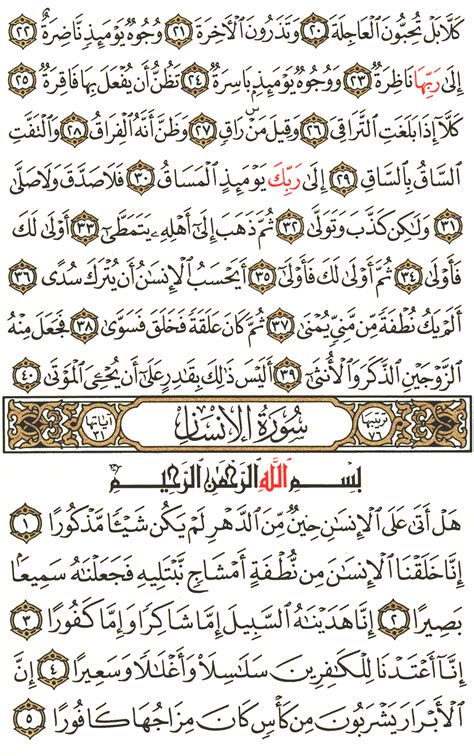 كَلَّا بَلْ تُحِبُّونَ ٱلْعَاجِلَةَ ٢٠ وَتَذَرُونَ ٱلْأَخِرَةَ ٢١ وُجُوهٌ يَوْمَئِذٍ نَّاضِرَةٌ ٢٢
إِلَىٰ رَبِّهَا نَاظِرَةٌ ٢٣ وَوُجُوهٌ يَوْمَئِذٍۭ بَاسِرَةٌ ٢٤ تَظُنُّ أَن يُفْعَلَ بِهَا فَاقِرَةٌ ٢٥
كَلَّا إِذَا بَلَغَتِ ٱلتَّرَاقِيَ ٢٦ وَقِيلَ مَنْ ۜ رَاقٍ ٢٧ وَظَنَّ أَنَّهُ ٱلْفِرَاقُ ٢٨ وَٱلْتَفَّتِ
ٱلسَّاقُ بِٱلسَّاقِ ٢٩ إِلَىٰ رَبِّكَ يَوْمَئِذٍ ٱلْمَسَاقُ ٣٠ فَلَا صَدَّقَ وَلَا صَلَّىٰ
٣١ وَلَٰكِن كَذَّبَ وَتَوَلَّىٰ ٣٢ ثُمَّ ذَهَبَ إِلَىٰٓ أَهْلِهِۦ يَتَمَطَّىٰٓ ٣٣ أَوْلَىٰ لَكَ
فَأَوْلَىٰ ٣٤ ثُمَّ أَوْلَىٰ لَكَ فَأَوْلَىٰٓ ٣٥ أَيَحْسَبُ ٱلْإِنسَٰنُ أَن يُتْرَكَ سُدًى ٣٦
أَلَمْ يَكُ نُطْفَةً مِّن مَّنِىٍّ يُمْنَىٰ ٣٧ ثُمَّ كَانَ عَلَقَةً فَخَلَقَ فَسَوَّىٰ ٣٨ فَجَعَلَ مِنْهُ
ٱلزَّوْجَيْنِ ٱلذَّكَرَ وَٱلْأُنثَىٰٓ ٣٩ أَلَيْسَ ذَٰلِكَ بِقَٰدِرٍ عَلَىٰٓ أَن يُحْـِۧىَ ٱلْمَوْتَىٰ ٤٠
ترتيبها ٧٦ سُورَةُ الإِنسَانِ آياتها ٣١
بِسْمِ ٱللَّهِ ٱلرَّحْمَٰنِ ٱلرَّحِيمِ
هَلْ أَتَىٰ عَلَى ٱلْإِنسَٰنِ حِينٌ مِّنَ ٱلدَّهْرِ لَمْ يَكُن شَيْـًٔا مَّذْكُورًا ١
إِنَّا خَلَقْنَا ٱلْإِنسَٰنَ مِن نُّطْفَةٍ أَمْشَاجٍ نَّبْتَلِيهِ فَجَعَلْنَٰهُ سَمِيعًۢا
بَصِيرًا ٢ إِنَّا هَدَيْنَٰهُ ٱلسَّبِيلَ إِمَّا شَاكِرًا وَإِمَّا كَفُورًا ٣
إِنَّآ أَعْتَدْنَا لِلْكَٰفِرِينَ سَلَٰسِلَا۟ وَأَغْلَٰلًا وَسَعِيرًا ٤ إِنَّ
ٱلْأَبْرَارَ يَشْرَبُونَ مِن كَأْسٍ كَانَ مِزَاجُهَا كَافُورًا ٥